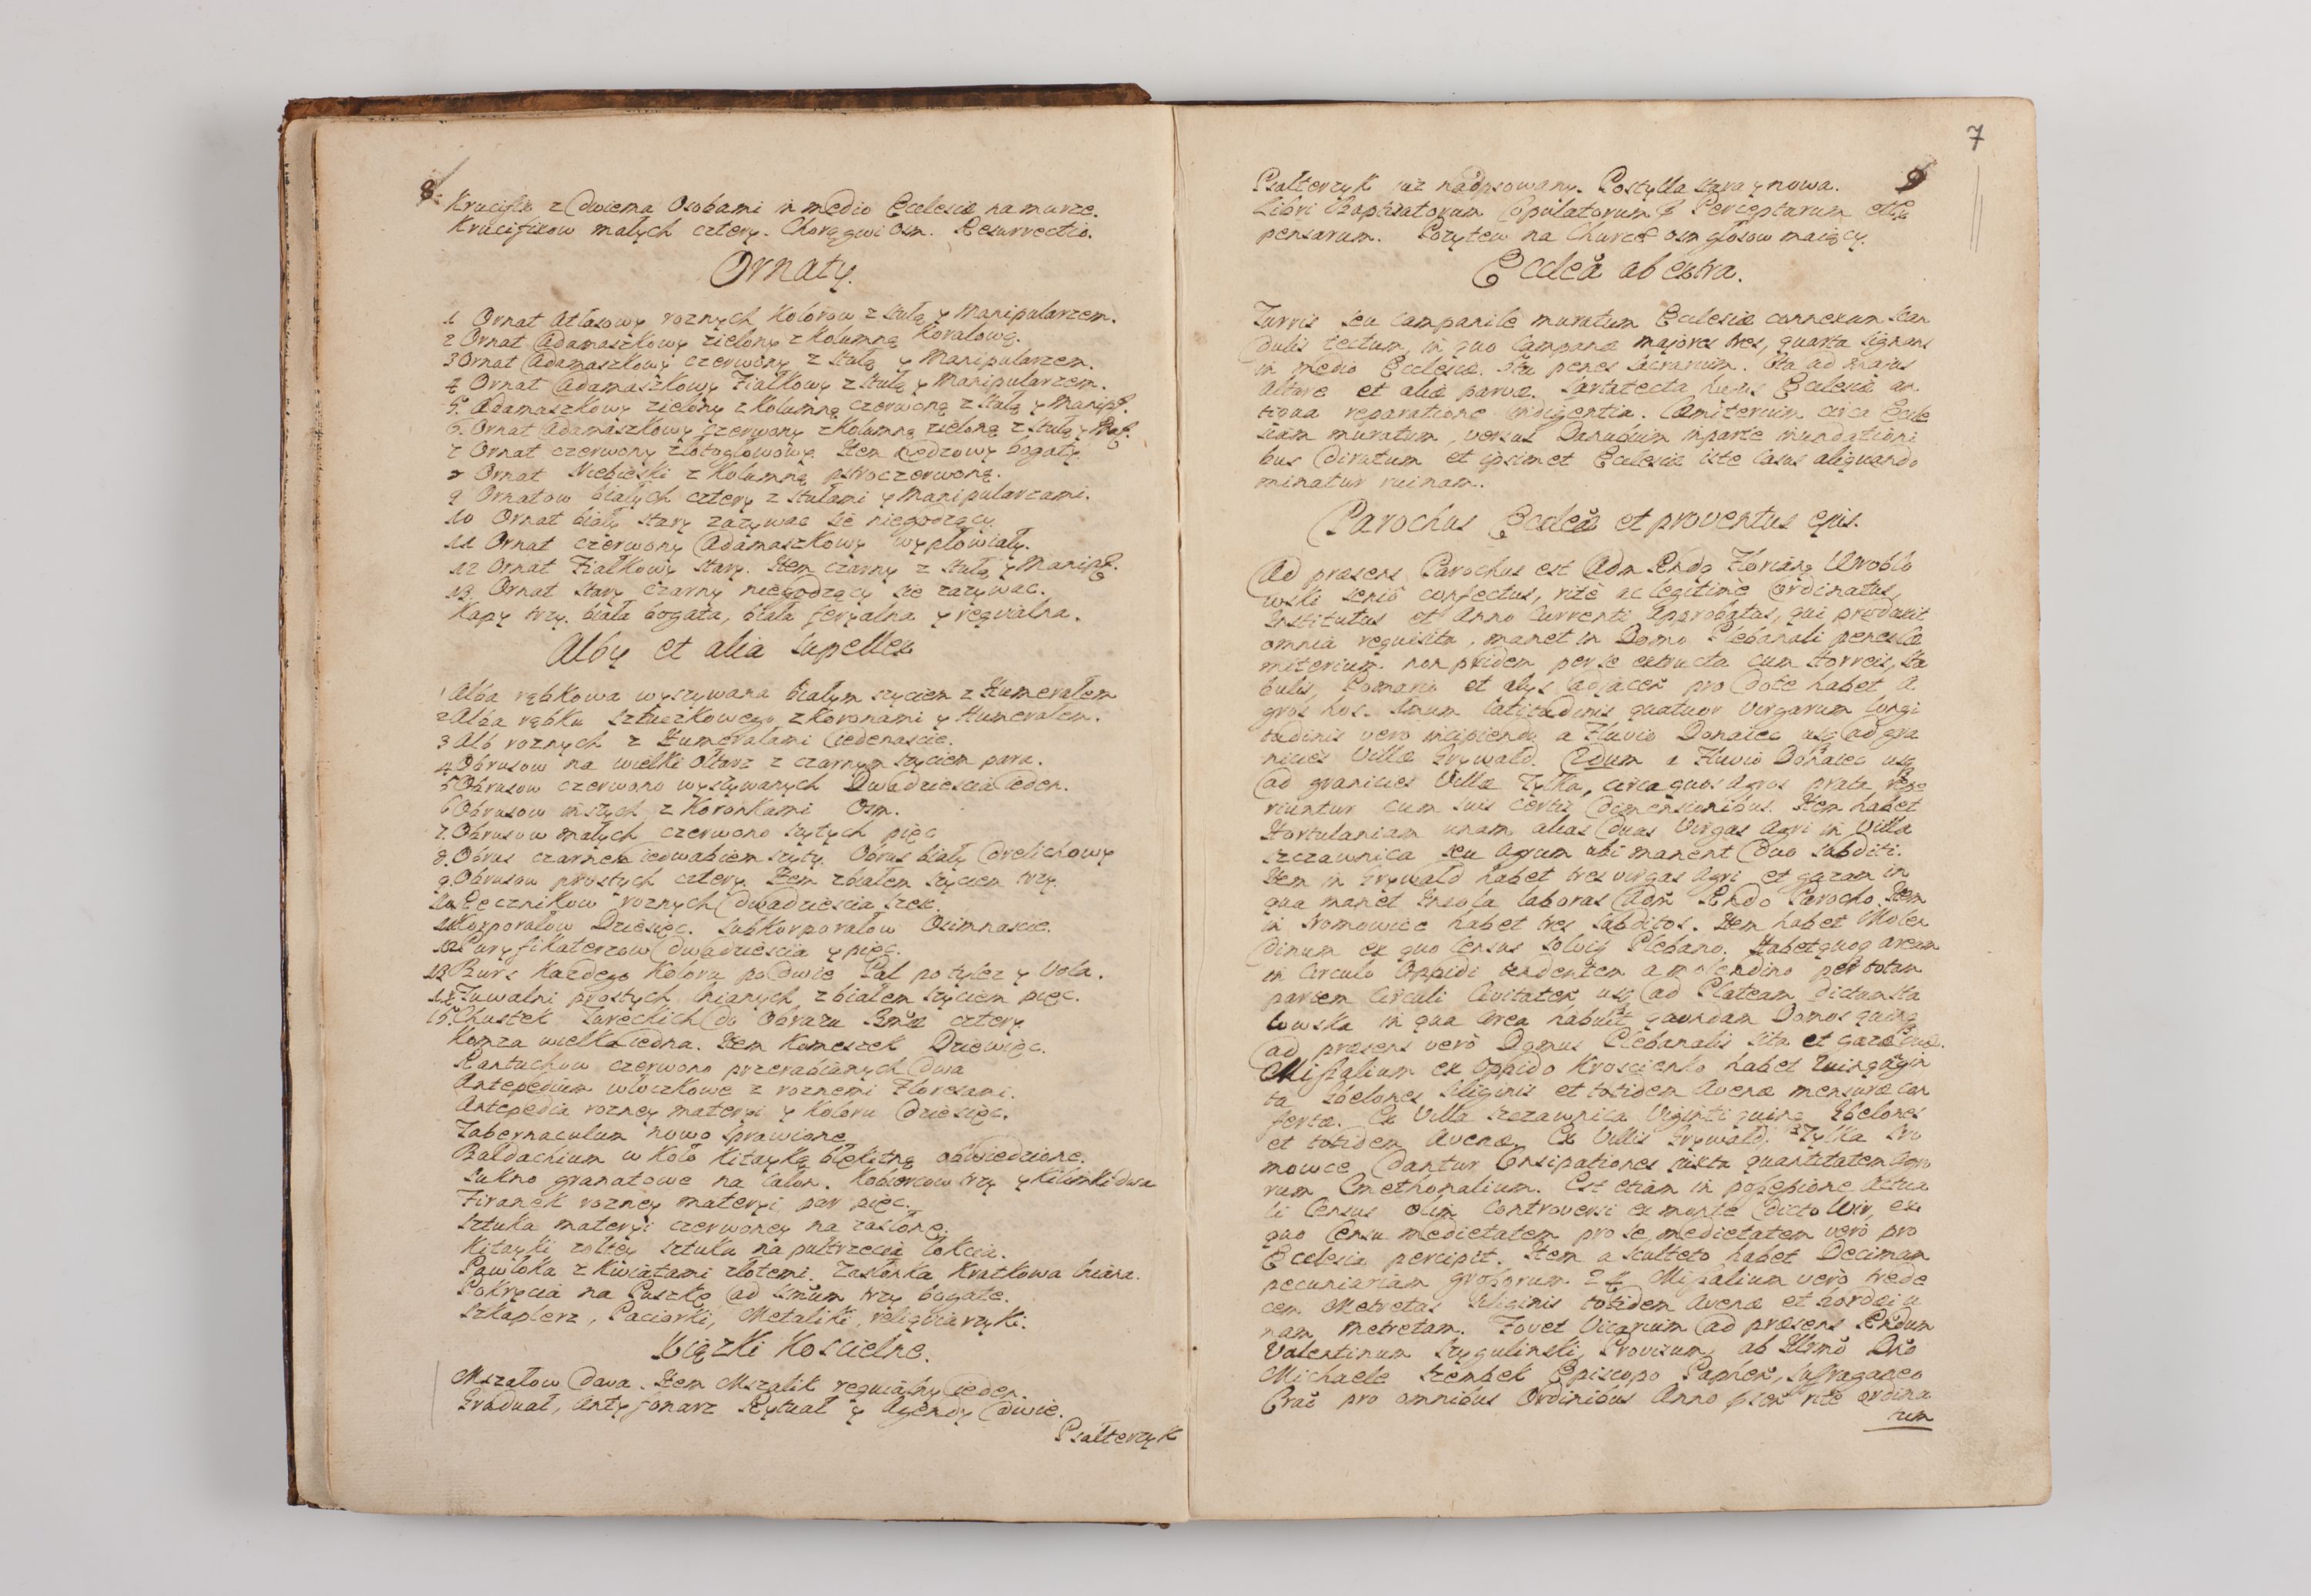 8
Krucifix z dwiema Osobami in medio Ecclesiæ na murze.
Krucifixow małych cztery. Chorągwi osm. Resurrectio.
Ornaty.
1 Ornat Atlasowy roznych Kolorow z Stułą y Manipularzem.
2 Ornat Adamaszkowy zielony z Kolumną Koralową.
3 Ornat Adamaszkowy czerwony z Stułą y Manipularzem.
4 Ornat Adamaszkowy Fiałkowy z Stułą y Manipularzem.
5. Adamaszkowy zielony z Kolumną czerwoną z Stułą y Manip.
6. Ornat Adamaszkowy czerwony z Kolumną zieloną z Stułą y
7 Ornat czerwony złotogłowowy. Item bogaty
8 Ornat Niebieski z Kolumną pstroczerwoną.
9 Ornatow białych cztery z Stułami y Manipularzami.
10 Ornat biały stary zazywac sie niegodzący.
11 Ornat czerwony Adamaszkowy wypłowiały.
12 Ornat Fiałkowy stary. Item czarny z Stułą y Manip.
13. Ornat stary czarny niegodzący sie zazywac.
Kapy trzy. biała bogata, biała feryalna y requialna.
Alby et alia supellex
1 Alba rąbkowa wyszywana białym szyciem z Humerałem
2 Alba rąbku Sztuczkowego z Koronami y Humerałem.
3 Alb roznych z Humerałami iedenascie.
4 Obrusow na wielki Ołtarz z czarnym szyciem para.
5 Obrusow czerwono wyszywanych Dwadziescia ieden.
6 Obrusow inszych z Koronkami Osm.
7. Obrusow małych czerwono szytych pięc
8. Obrus czarnem iedwabiem szyty. Obrus biały drelichowy
9. Obrusow prostych cztery. Item z białem szyciem trzy.
10 Ręcznikow roznych dwadziescia szesc.
11 Korporałow Dziesięc. Subkorporałow Osimnascie.
12 Puryfikaterzow dwadziescia y pięc.
13 Burs Kazdego Koloru po dwie Pal po tylez y Vela.
14 Tuwalni prostych lnianych z białem szyciem pięc.
15 Chustek Tureckich do Obrazu cztery
Komza wielka iedna. Item Komeszek Dziewięc.
Rantuchow czerwono przerabianych dwa
Antepedium włoczkowe z roznemi Floresami.
Antepedia rozney materyi y Koloru dziesięc.
Tabernaculum nowo sprawione
Baldachium w Koło Kitayką błękitną obwiedzione.
Sukno granatowe na Kobiercow trzy y Kilimki dwa
Firanek rozney materyi par pięc.
Sztuka materyi czerwoney na zasłonę.
Kitayki zołtey sztuka na pułtrzecia łokcia.
Pawłoka z Kwiatami złotemi. Zasłonka Kratkowa lniana.
Pokrycia na Puszkę ad trzy bogate.
Szkaplerz, Paciorki, Metaliki, reliquiarzyki.
Xiązki Koscielne.
Mszałow dwa. Item Mszalik requialny ieden.
Graduał, Antyfonarz Rytuał y Agendy dwie.
Psałterzyk
7
9
Psałterzyk iuz nadpsowany. Postylla stara y nowa.
Libri Baptisatorum Copulatorum & Perceptarum et Ex
pensarum. Pozytew na Churze osm głosow maiący.
Eccleã ab extra.
Turris seu campanile muratum Ecclesiæ connexum scan
dulis tectum, in quo Campanæ majores tres, quarta signans
in medio Ecclesiæ. 5ta penes Sacrarium. 6ta ad majus
Altare et aliæ parvæ. Sartatecta hujus Ecclesiæ an
tiqua reparatione indigentia. Cæmiterium circa Eccle
siam muratum, versus Danubium in parte inundationi
bus dirutum et ipsimet Ecclesiæ iste Casus aliquando
minatur ruinam.
Parochus Eccleæ et proventus ejus.
Ad præsens Parochus est Adm Rndo Floriang Wroblo
wski senio confectus, ritè ac legitimè ordinatus,
Institutus et Anno Currenti Approbatus, qui produxit
omnia requisita, manet in Domo Plebanali penes Cæ
miterium non pridem per se extructa cum Horreis, sta
bulis, Pomario et alijs adjacen pro dote habet A
gros hos. Unum latitudinis quatuor Virgarum longi
tudinis vero incipiendo a Fluvio Donaiec usq ad gra
nicies Villæ Grywald. 2dum a Fluvio Donaiec usq
ad granicies Villæ Tylka, circa quos Agros prata repe
riuntur cum suis certis dimensionibus. Item habet
Hortulaniam unam alias duas Virgas Agri in Villa
Szczawnica seu Agrum ubi manent duo subditi.
Item in Grywald habet tres virgas Agri et gazam in
qua manet Incola laborans Adm Rndo Parocho. Item
in Sromowice habet tres subditos. Item habet Molen
dinum ex quo Census solvi Plebano. Habet quoq aream
in Circulo Oppidi tendentem a molendino per totam
partem Circuli Civitaten usq ad Plateam dictam Sta
lowska in qua Area habuit quondam Domos quinq
ad præsens verò Domus Plebanalis sita et gazæ duæ.
Missalium ex Oppido Kroscienko habet Quinquagin
ta Gbelones Siliginis et totidem Avenæ mensuræ con
fertæ. Ex Villa Szczawnica Viginti quinq Gbelones
et totidem Avenæ. Ex Villis Grywald, Tylka Sro
mowce dantur Consipationes juxta quantitatem Agro
rum Cmethonalium. Est etiam in possessione Actua
li Census olim Controversi ex monte dicto Wir, ex
quo Censu medietatem pro se, medietatem verò pro
Ecclesia percipit. Item a Sculteto habet Decimam
pecuniariam grossorum 24 Missalium verò trede
cem Metretas Siliginis totidem Avenæ et hordei u
nam metretam. Fovet Vicarium ad præsens Rndum
Valentinum Szygulinski, Provisum, ab Illmo Dño
Michaele Szembek Episcopo Paphen, Suffraganeo
Crac pro omnibus Ordinibus Anno rite ordina
tum